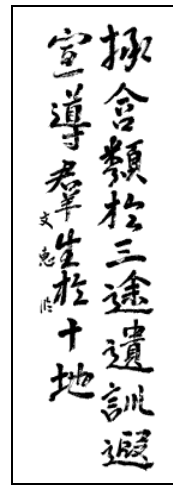 拯含類於三途遺訓遐
宣導羣生於十地
文惠